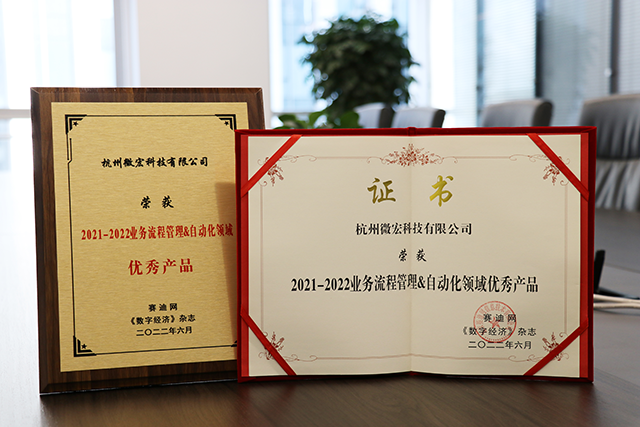 杭州微宏科技有限公司
荣获
2021-2022业务流程管理&自动化领域
优秀产品
赛迪网
《数字经济》杂志
二〇二二年六月
证书
杭州微宏科技有限公司
荣获
2021-2022业务流程管理&自动化领域优秀产品
赛迪网
《数字经济》杂志
二〇二二年六月